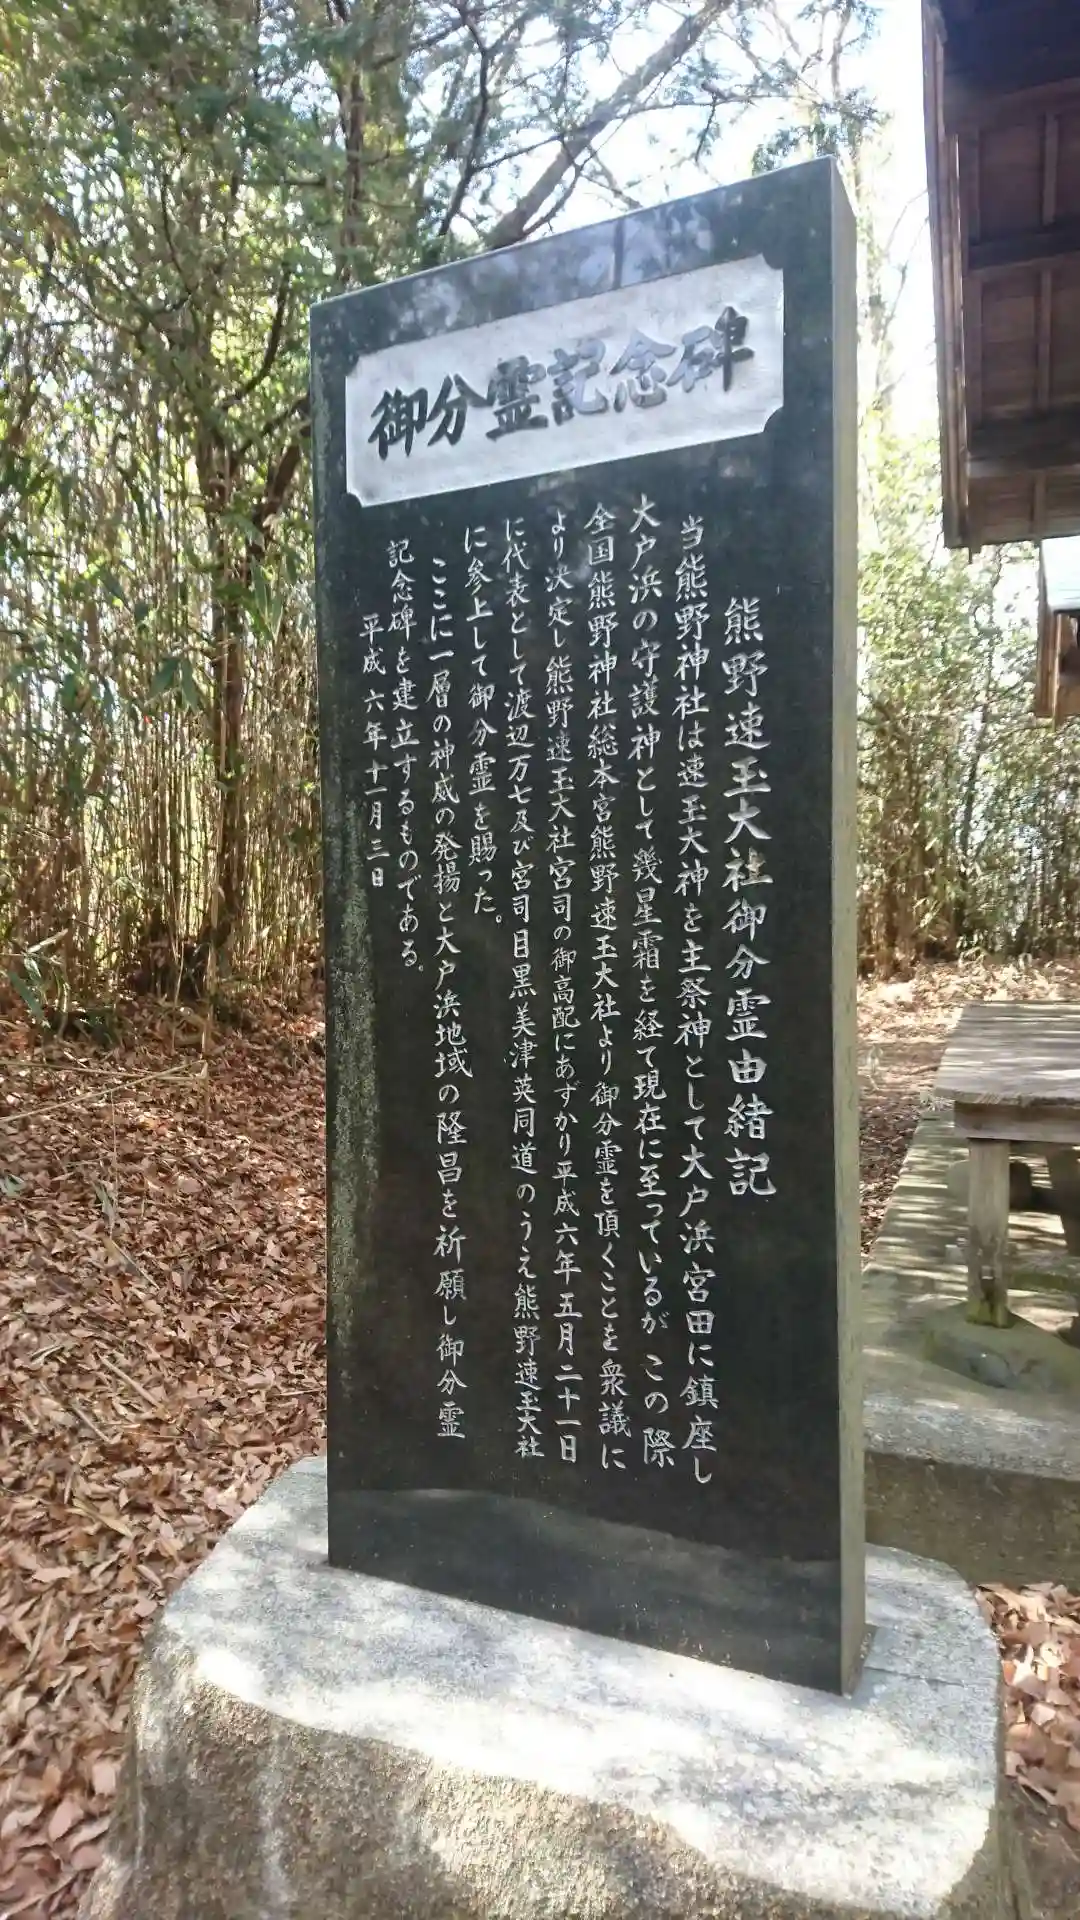 御分霊記念碑
熊野速玉大社御分霊由緒記
当熊野神社は速玉大神を主祭神として大戸浜宮田に鎮座し
大戸浜の守護神として幾星霜を経て現在に至っているがこの際
全国熊野神社総本宮熊野速玉大社より御分霊を頂くことを衆議に
より決定し熊野速玉大社宮司の御高配にあずかり平成六年五月二十一日
に代表として渡辺万七及び宮司目黒美津英同道のうえ熊野速玉大社
に参上して御分霊を賜った。
ここに一層の神威の発揚と大戸浜地域の隆昌を祈願し御分霊
記念碑を建立するものである。
平成六年十一月三日